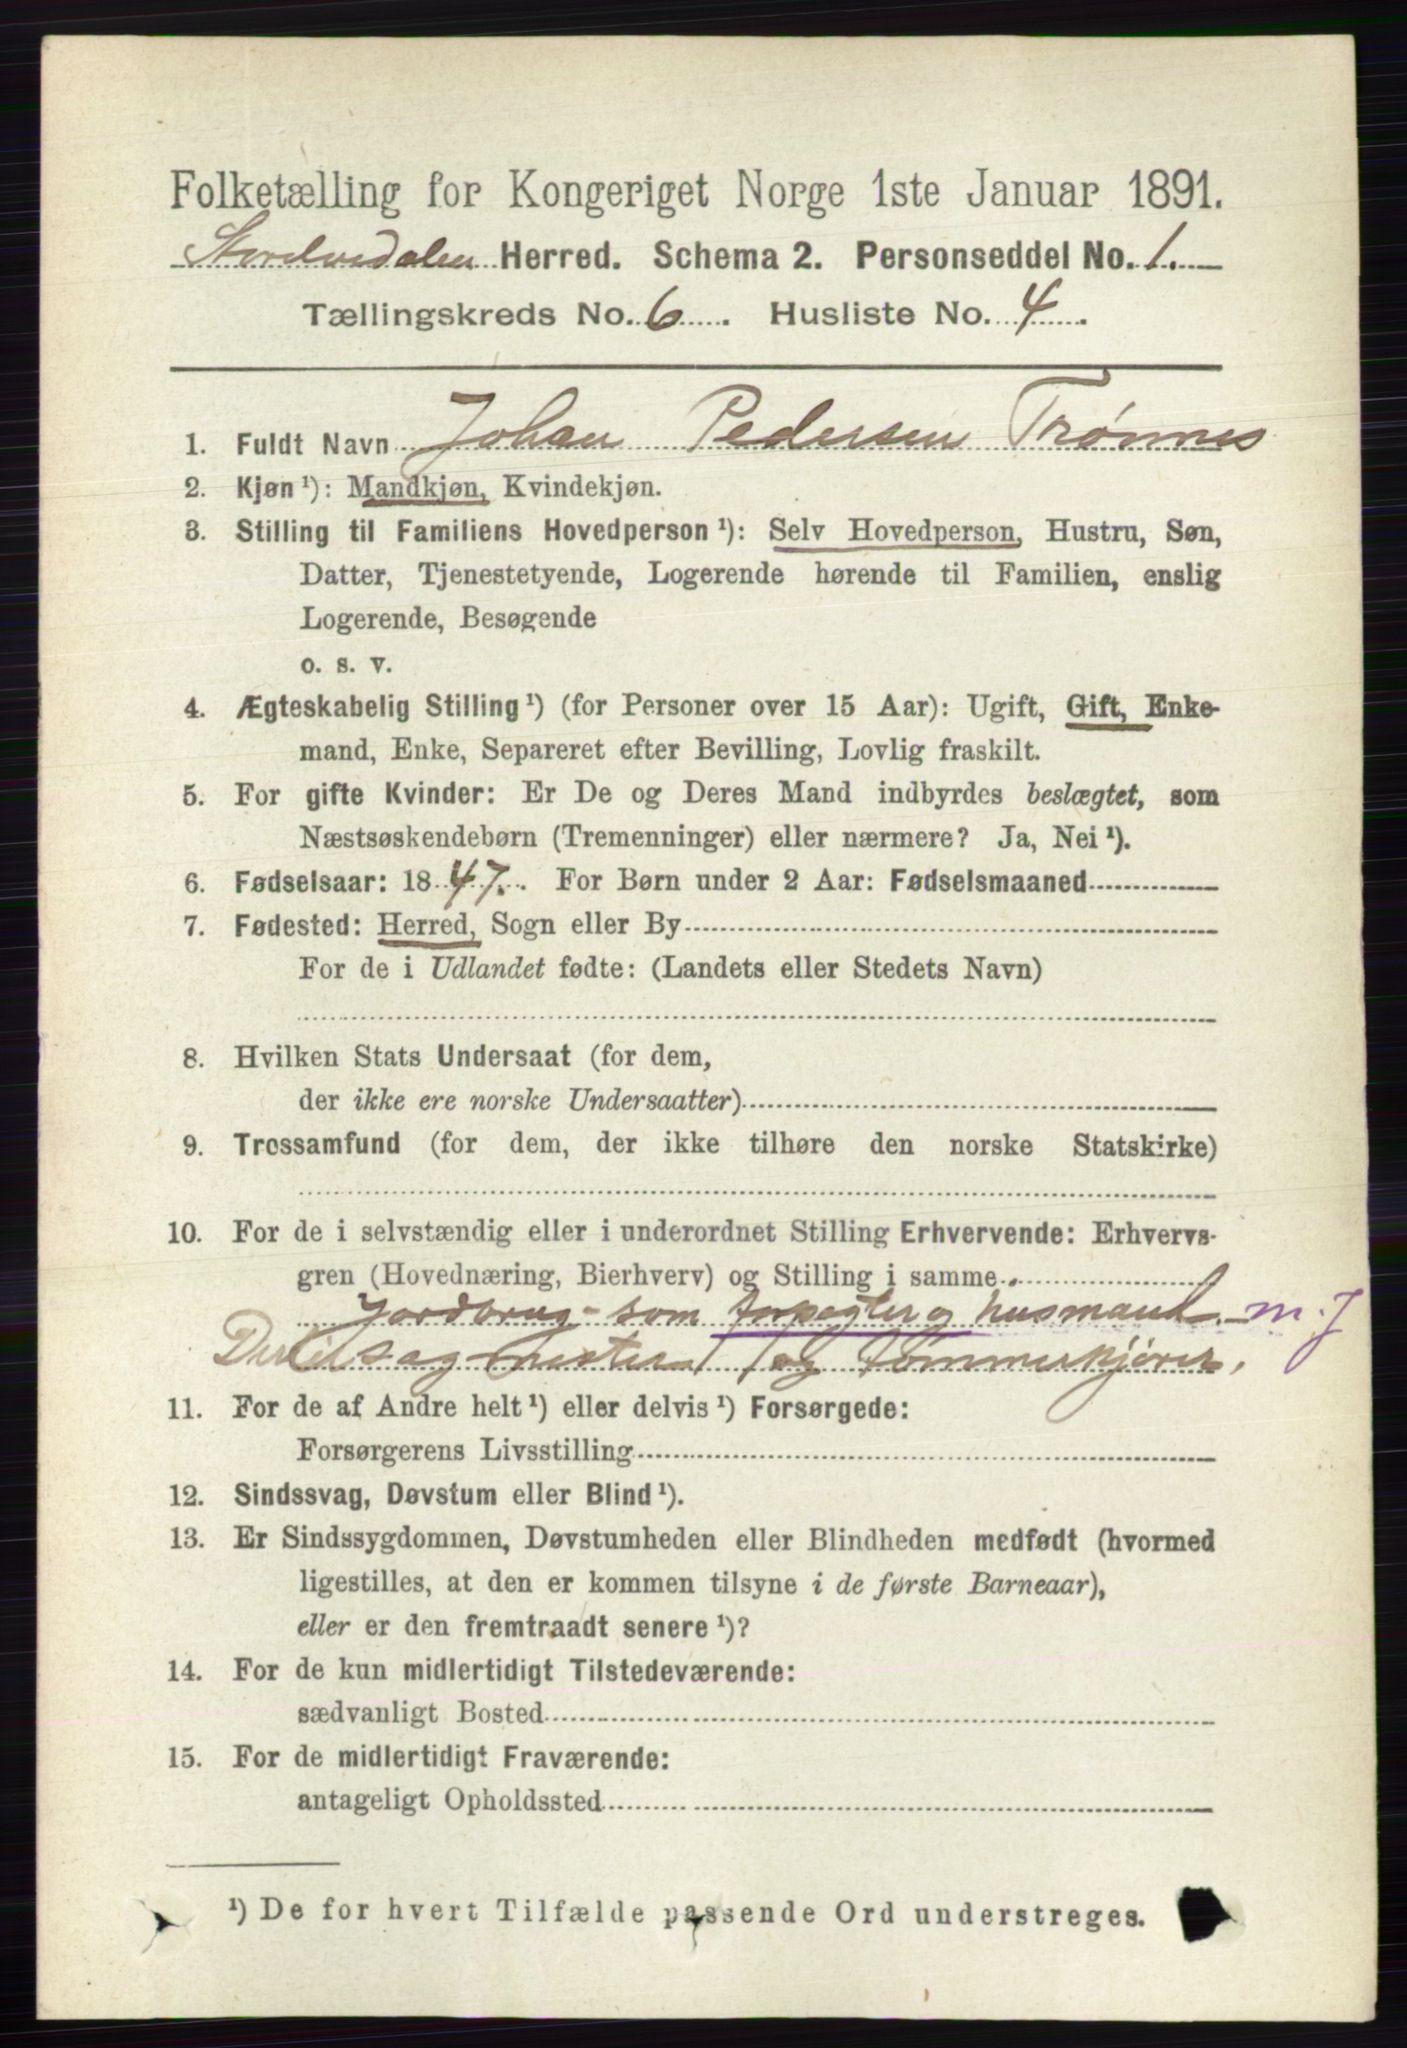 Folketælling for Kongeriget Norge 1ste Januar 1891.
Storelvedalen Herred. Schema 2. Personseddel No. 1.
Tællingskreds No. 6. Husliste No. 4.
1. Fuldt Navn Johan Pedersen Trønnes
2. Kjøn ¹): Mandkjøn, Kvindekjøn.
3. Stilling til Familiens Hovedperson ¹): Selv Hovedperson, Hustru, Søn,
Datter, Tjenestetyende, Logerende hørende til Familien, enslig
Logerende, Besøgende
o. s. v.
4. Ægteskabelig Stilling ¹) (for Personer over 15 Aar): Ugift, Gift, Enke-
mand, Enke, Separeret efter Bevilling, Lovlig fraskilt.
5. For gifte Kvinder: Er De og Deres Mand indbyrdes beslægtet, som
Næstsøskendebørn (Tremenninger) eller nærmere? Ja, Nei ¹).
6. Fødselsaar: 1847. For Børn under 2 Aar: Fødselsmaaned
7. Fødested: Herred, Sogn eller By
For de i Udlandet fødte: (Landets eller Stedets Navn)
8. Hvilken Stats Undersaat (for dem,
der ikke ere norske Undersaatter)
9. Trossamfund (for dem, der ikke tilhøre den norske Statskirke)
10. For de i selvstændig eller i underordnet Stilling Erhvervende: Erhvervs-
gren (Hovednæring, Bierhverv) og Stilling i samme
Jordbrug - som forpagter og husmand - m. J
sagmester og Tømmerkjører.
11. For de af Andre helt ¹) eller delvis ¹) Forsørgede:
Forsørgerens Livsstilling
12. Sindssvag, Døvstum eller Blind ¹).
13. Er Sindssygdommen, Døvstumheden eller Blindheden medfødt (hvormed
ligestilles, at den er kommen tilsyne i de første Barneaar),
eller er den fremtraadt senere ¹)?
14. For de kun midlertidigt Tilstedeværende:
sædvanligt Bosted
15. For de midlertidigt Fraværende:
antageligt Opholdssted
¹) De for hvert Tilfælde passende Ord understreges.